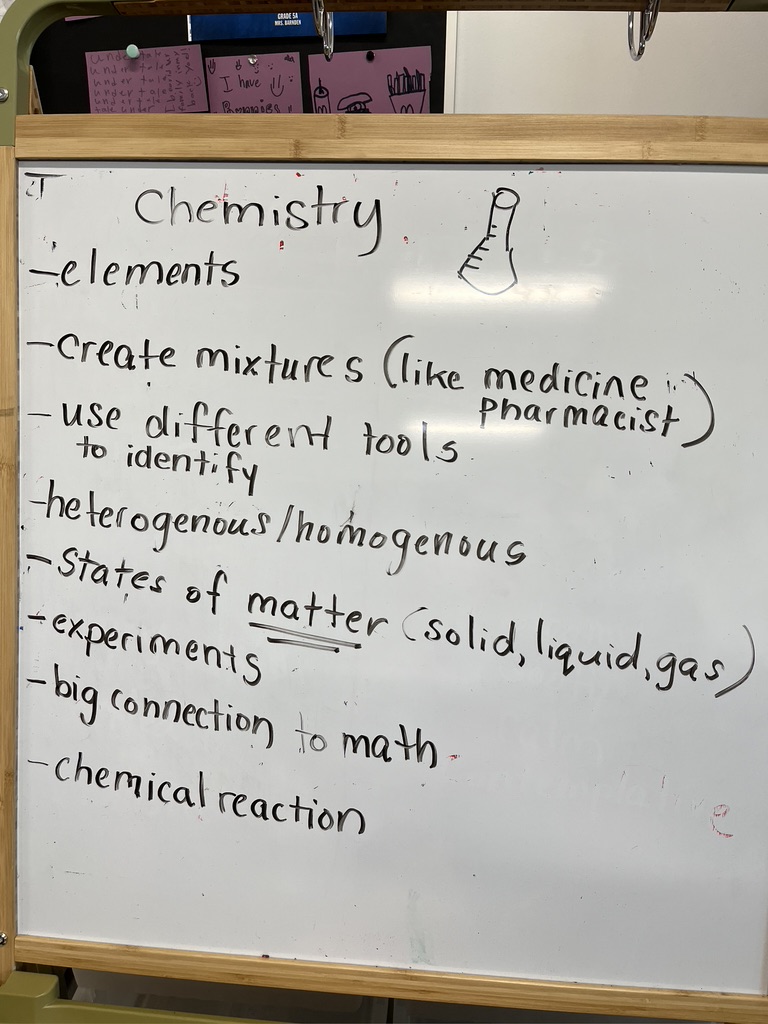 GRADE 5A
MRS. BARNDEN
I have
Chemistry
-elements
-create mixtures (like medicine
pharmacist)
- use different tools
to identify
-heterogenous/homogenous
-States of matter (solid, liquid, gas)
-experiments
-big connection to math
-chemical reaction
e